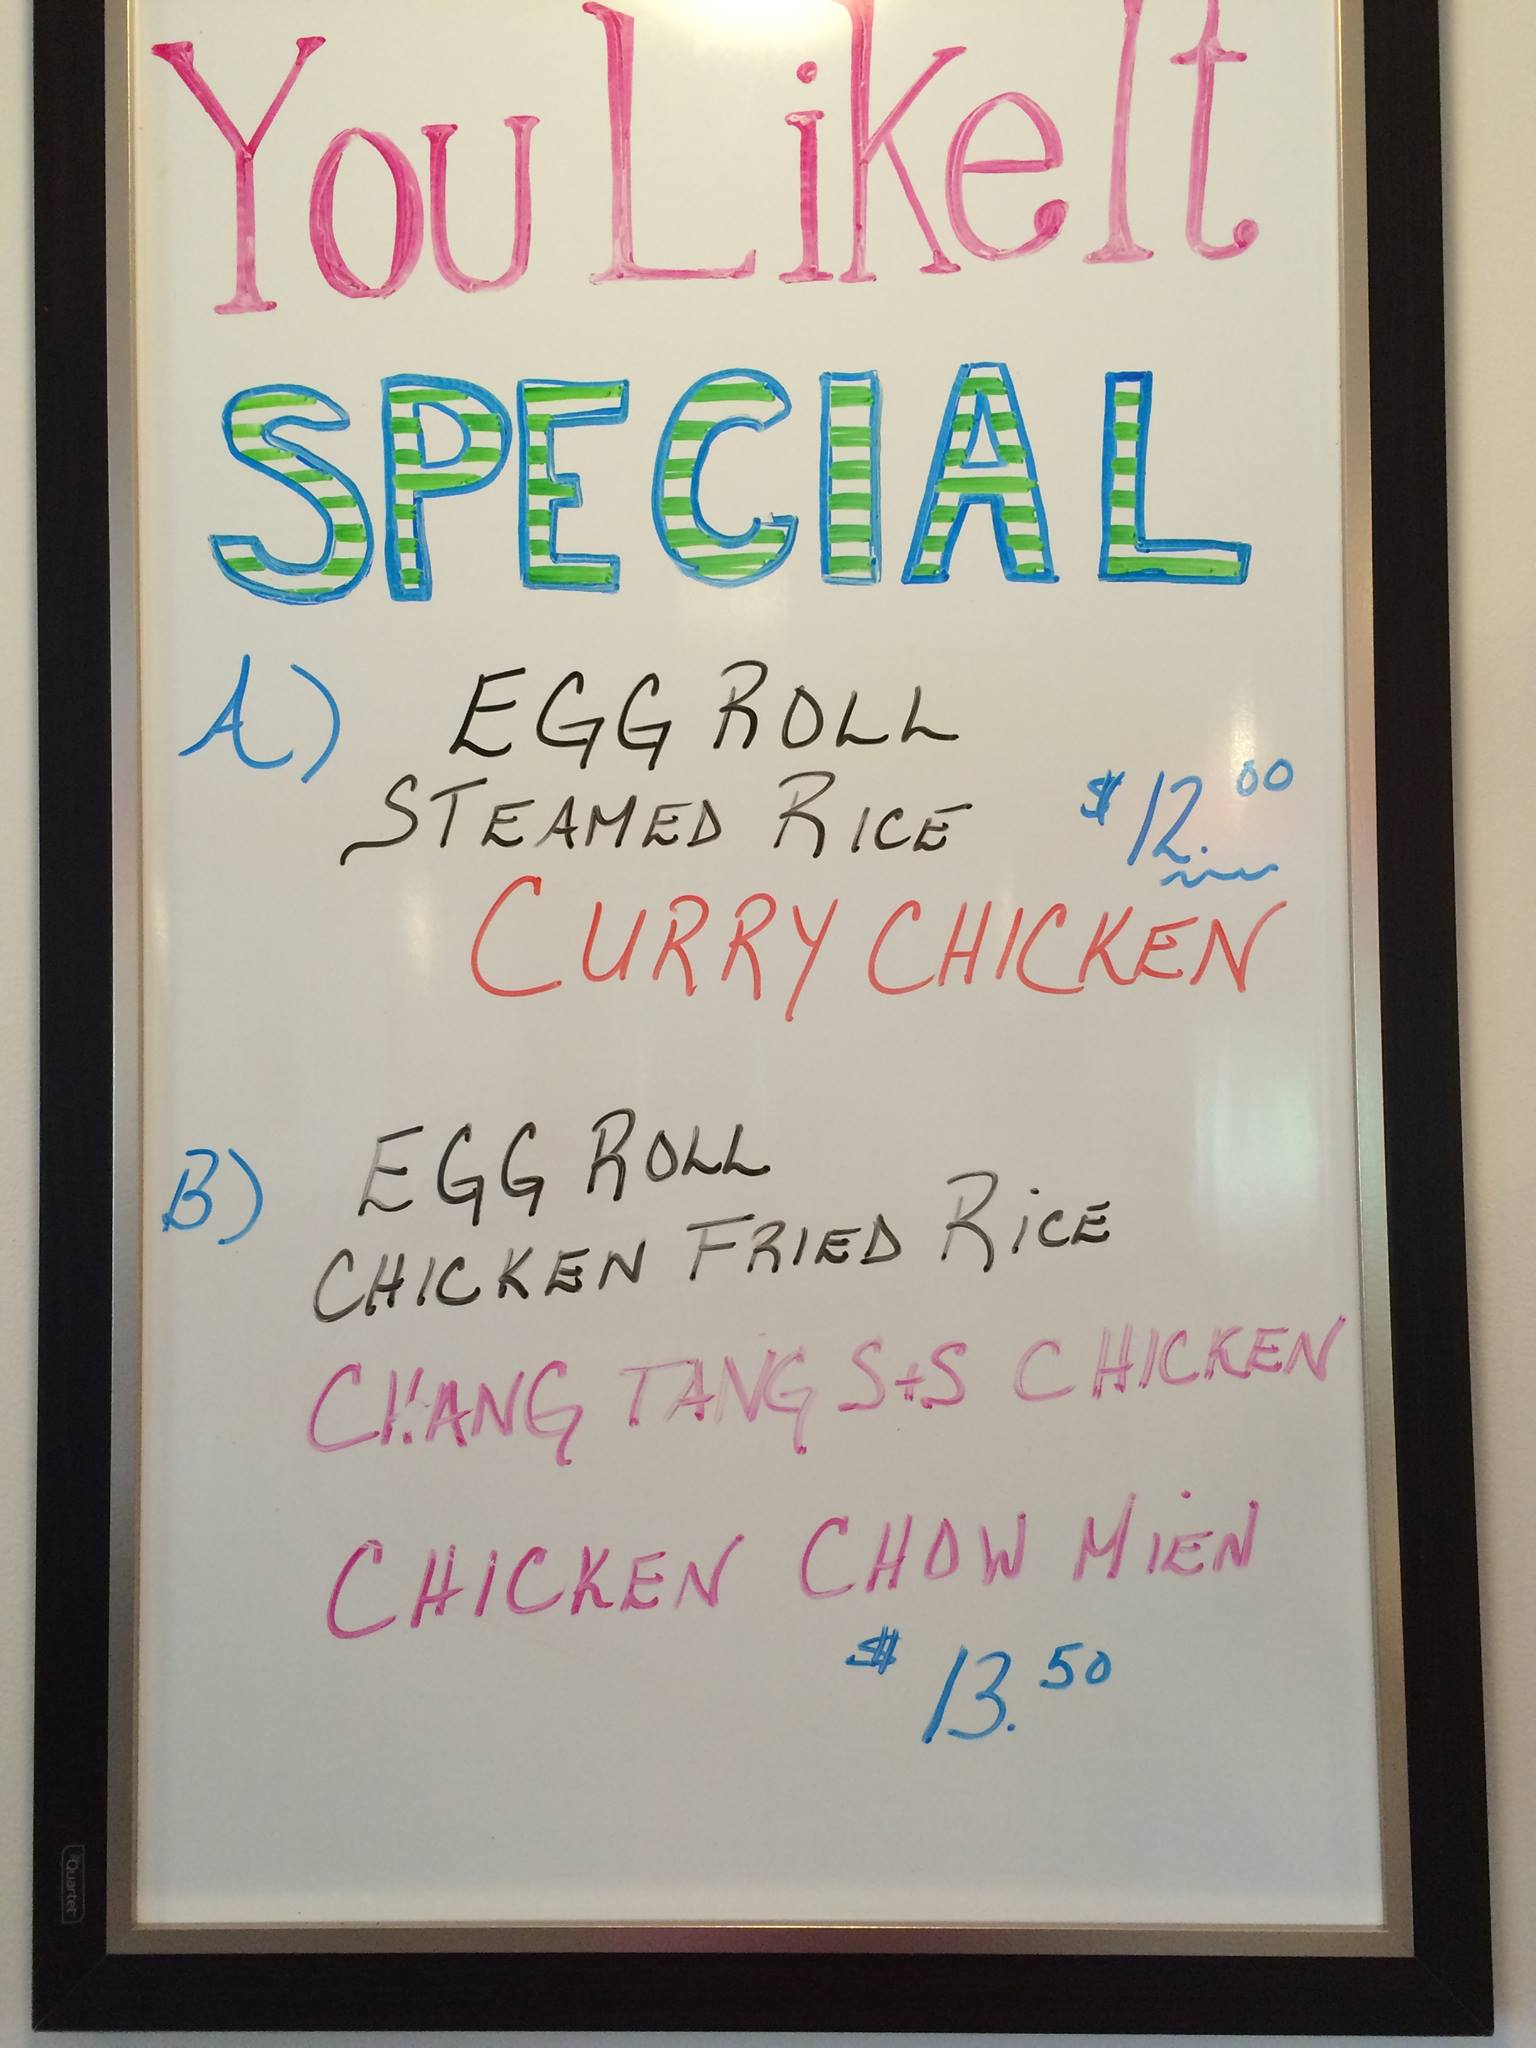 You Like It
SPECIAL
A) EGG ROLL
STEAMED RICE $12.00
CURRY CHICKEN
B) EGG ROLL
CHICKEN FRIED RICE
TANG S+S CHICKEN
CHICKEN CHOW MIEN
$13.50
Quartet